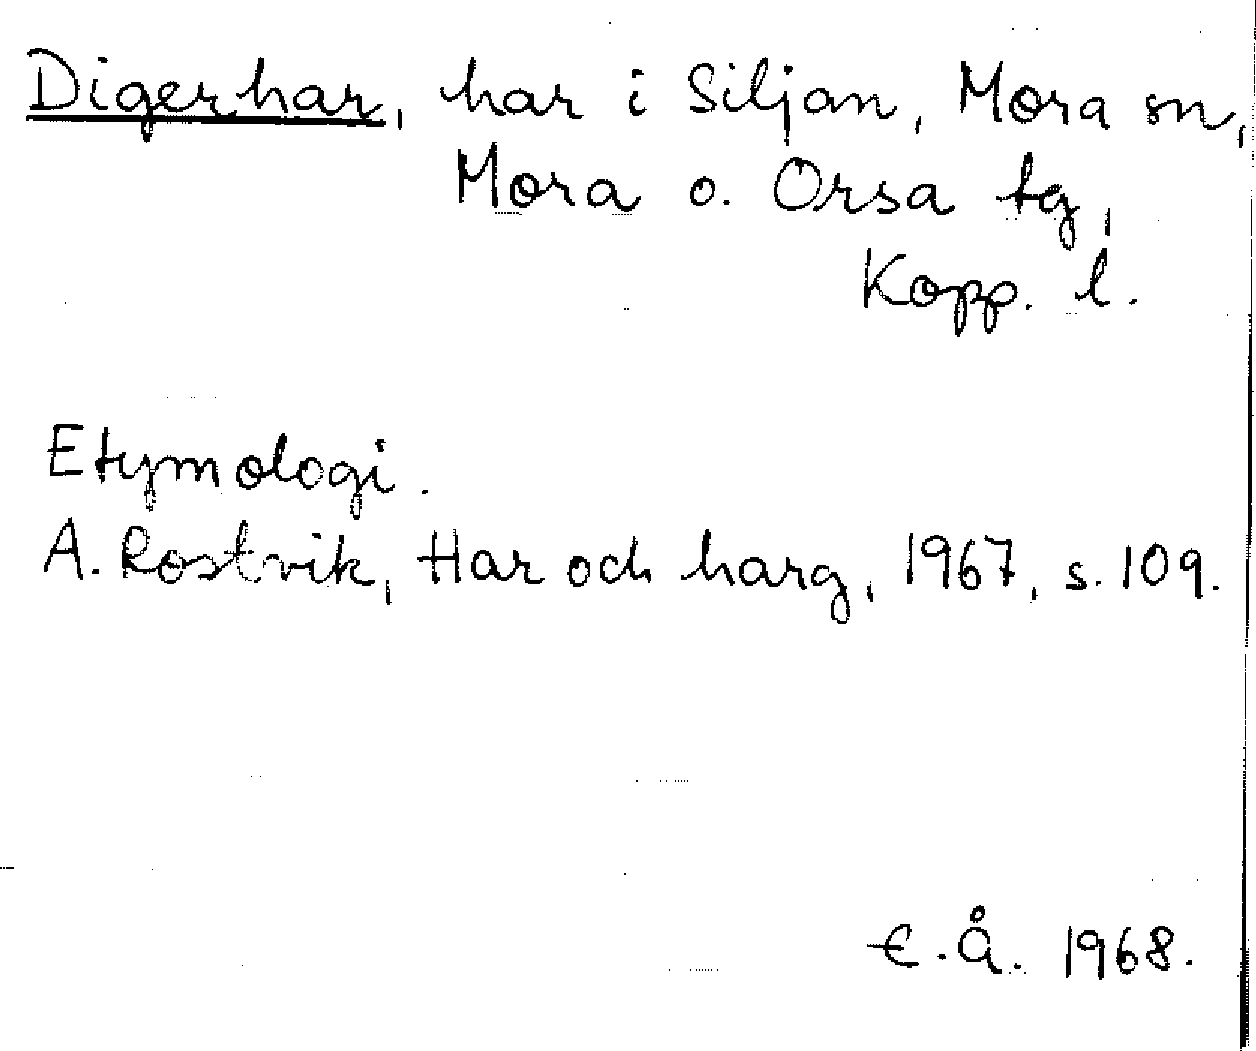 Digerhar, har i Siljan, Mora sn,
Mora o. Orsa tg,
Kopp. l.
Etymologi.
A. Rostvik, Har och harg, 1967, s. 109.
E.Å. 1968.